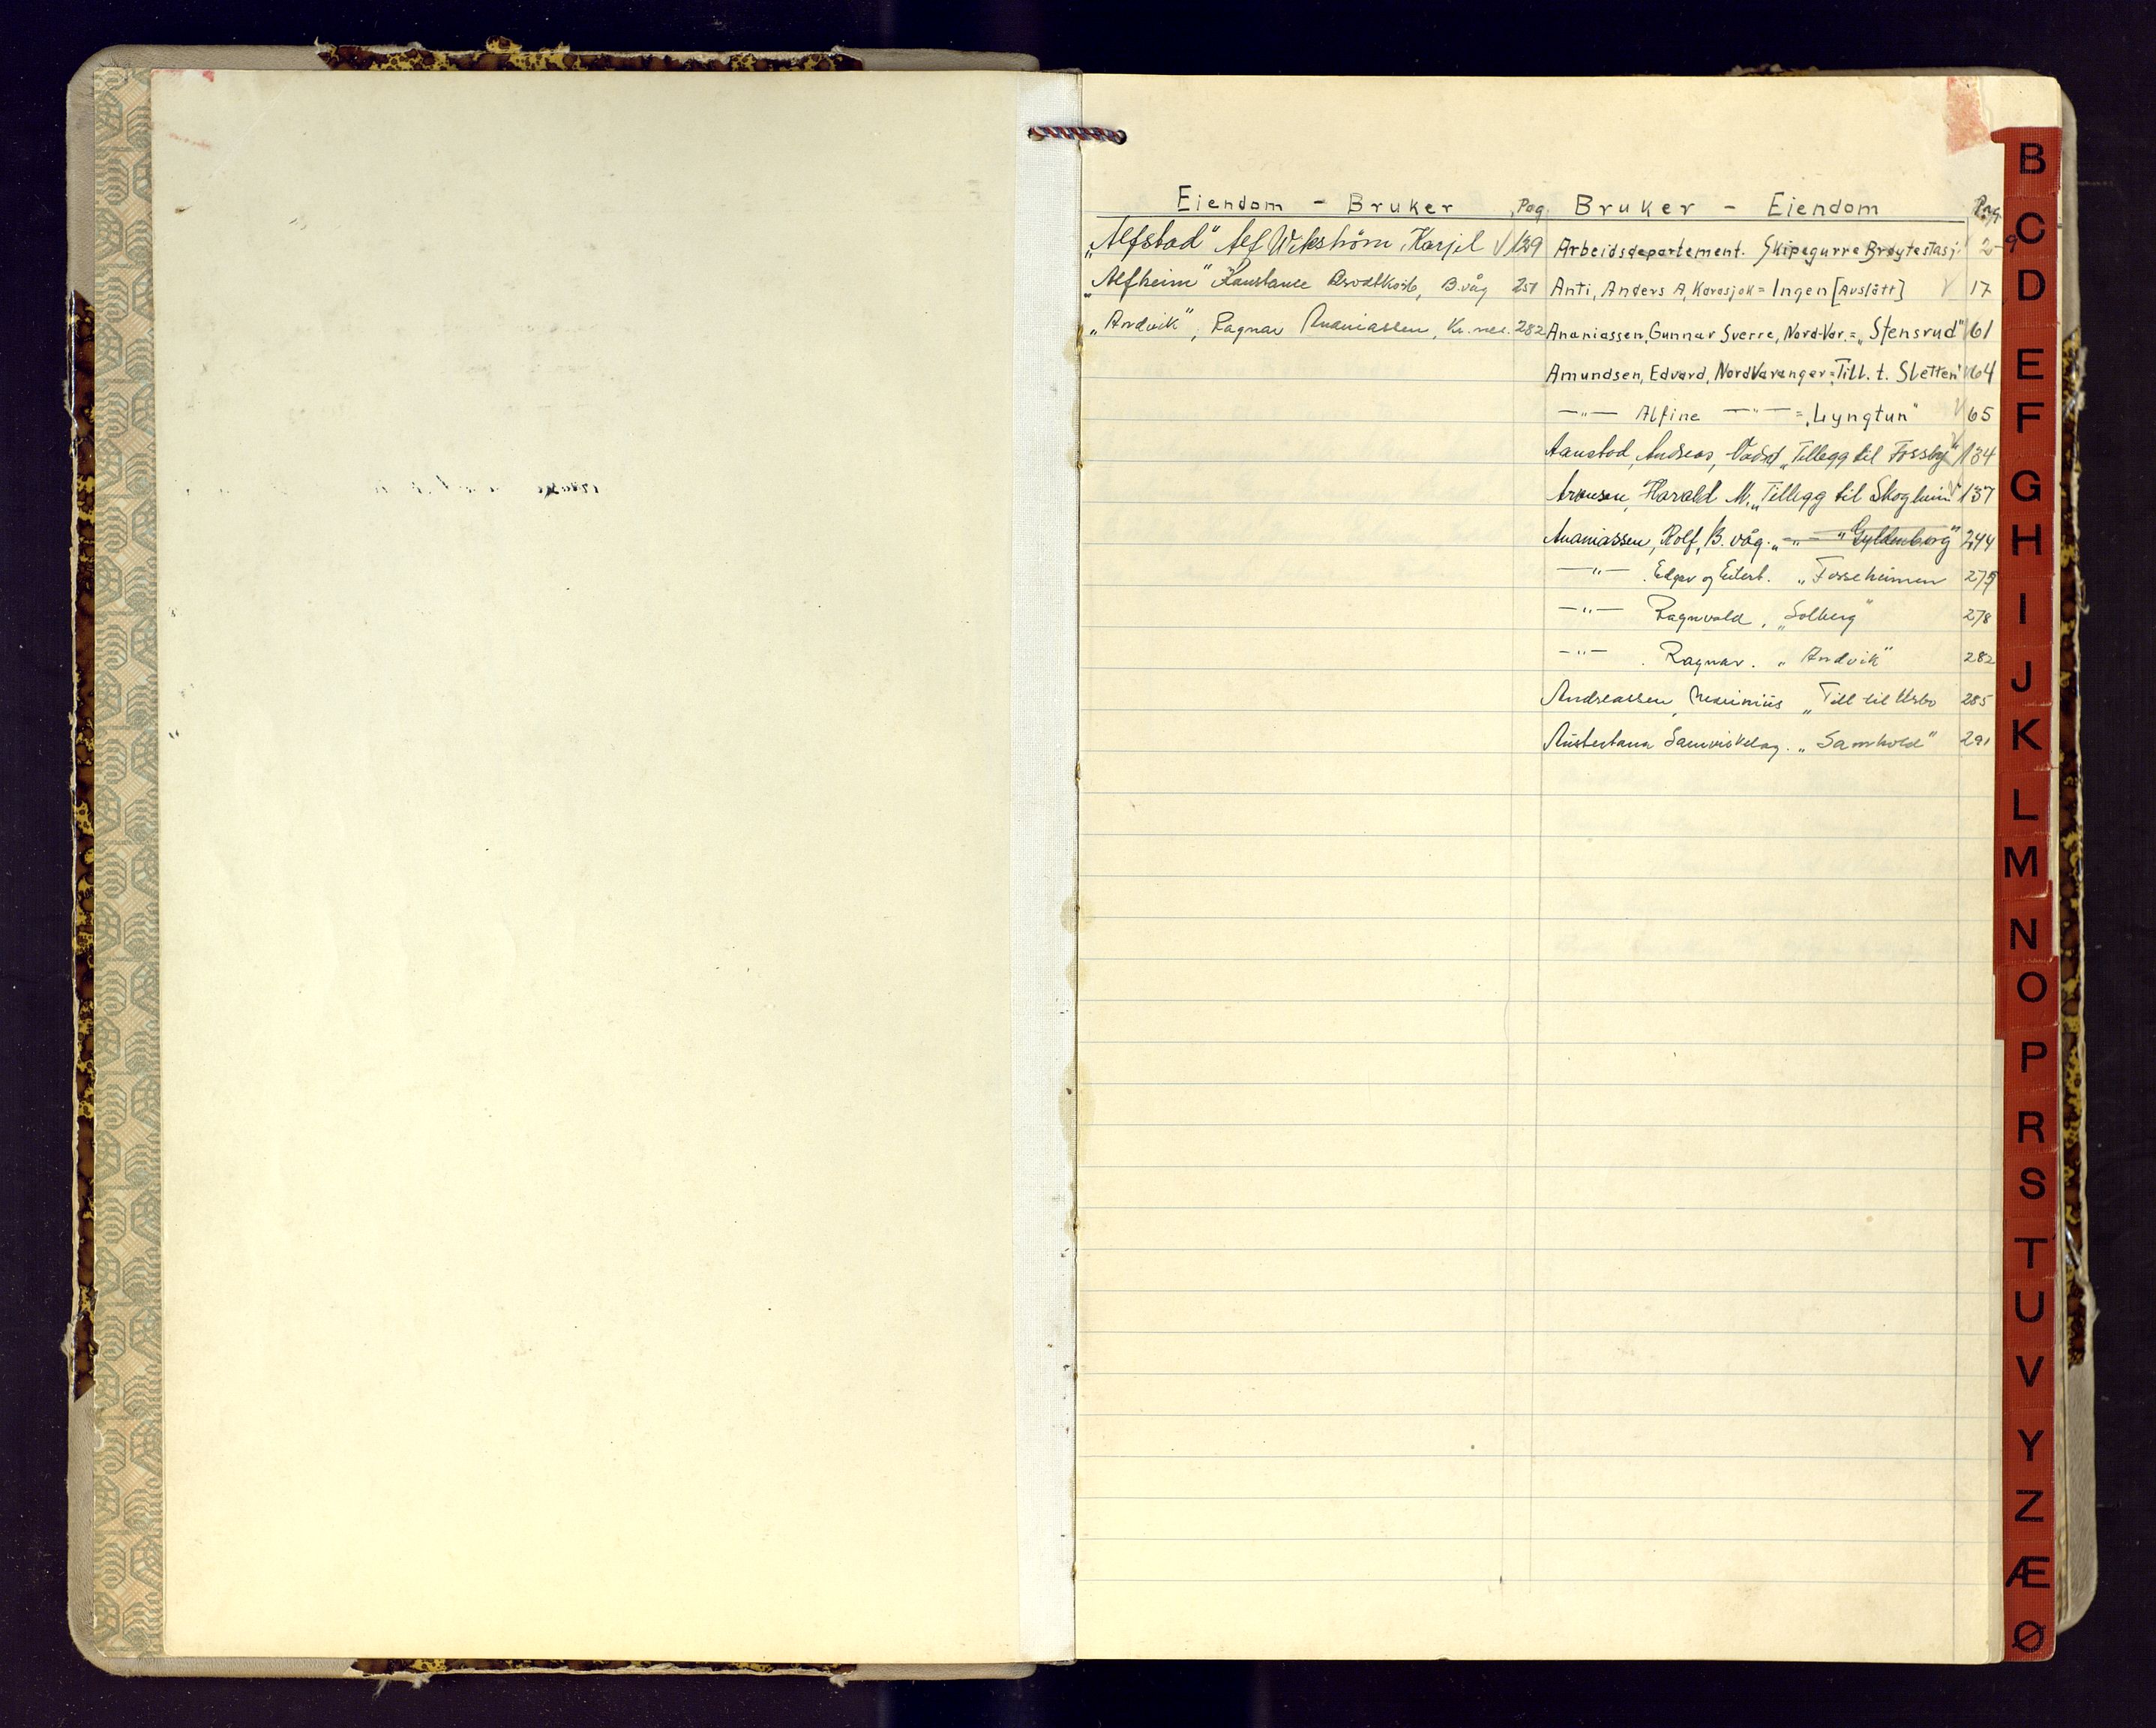 Eiendom - Bruker Pag. Bruker - Eiendom Pag.
„Alfstad" Alf Wikström, Karjel V 139
„Alfheim" Konstanse Brodtkorb, B.våg 251
„Andvik", Ragnar Ananiassen, Kr.nes. 282
Arbeidsdepartement. Skipagurra Brøytestasj. 2-9
Anti, Anders A, Karasjok = Ingen [Avslått] V 17
Ananiassen, Gunnar Sverre, Nord-Var. = „Stensrud" 61
Amundsen, Edvard, NordVaranger = „Till. t. Sletten" V 64
—"— Alfine —"— = „Lyngtun" V 65
Aanstad, Andreas, Vadsø „Tillegg til Fossby" V 134
Aronsen, Harald M. „Tillegg til Skogheim V 137
Ananiassen, Rolf, B.våg. „ —"— "Gyldenborg" 244
—"— . Edgar og Eilert. „Fosseheimen 275
—"— Ragnvald, „Solberg" 278
—"— . Ragnar. „Andvik" 282
Andreassen, „Till til Utsbo 285
Austertana Samvirkelag. „Samhold" 291
B
C
D
E
F
G
H
I
J
K
L
M
N
O
P
R
S
T
U
V
Y
Z
Æ
Ø